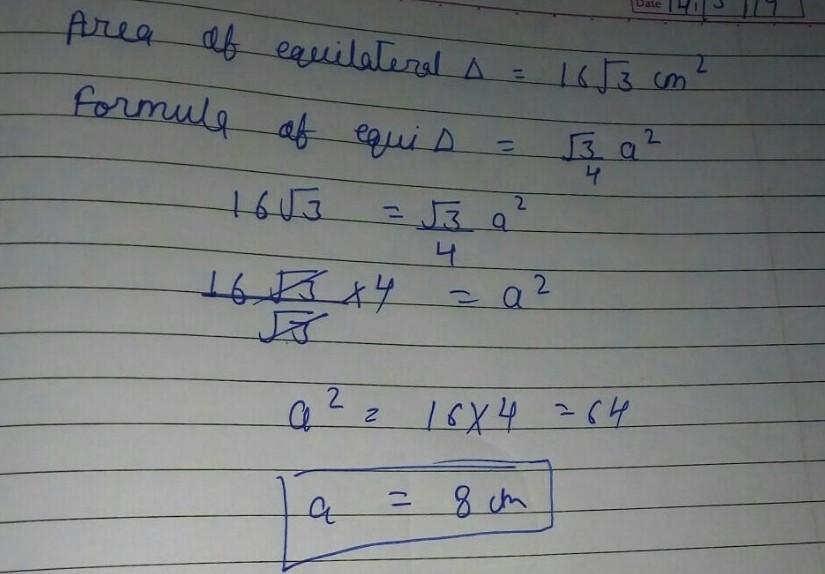 Date 14/3/19
Area of equilateral Δ = 16√3 cm²
Formula of equi Δ = √3/4 a²
16√3 = √3/4 a²
16√3/√3 × 4 = a²
a² = 16×4 = 64
a = 8 cm